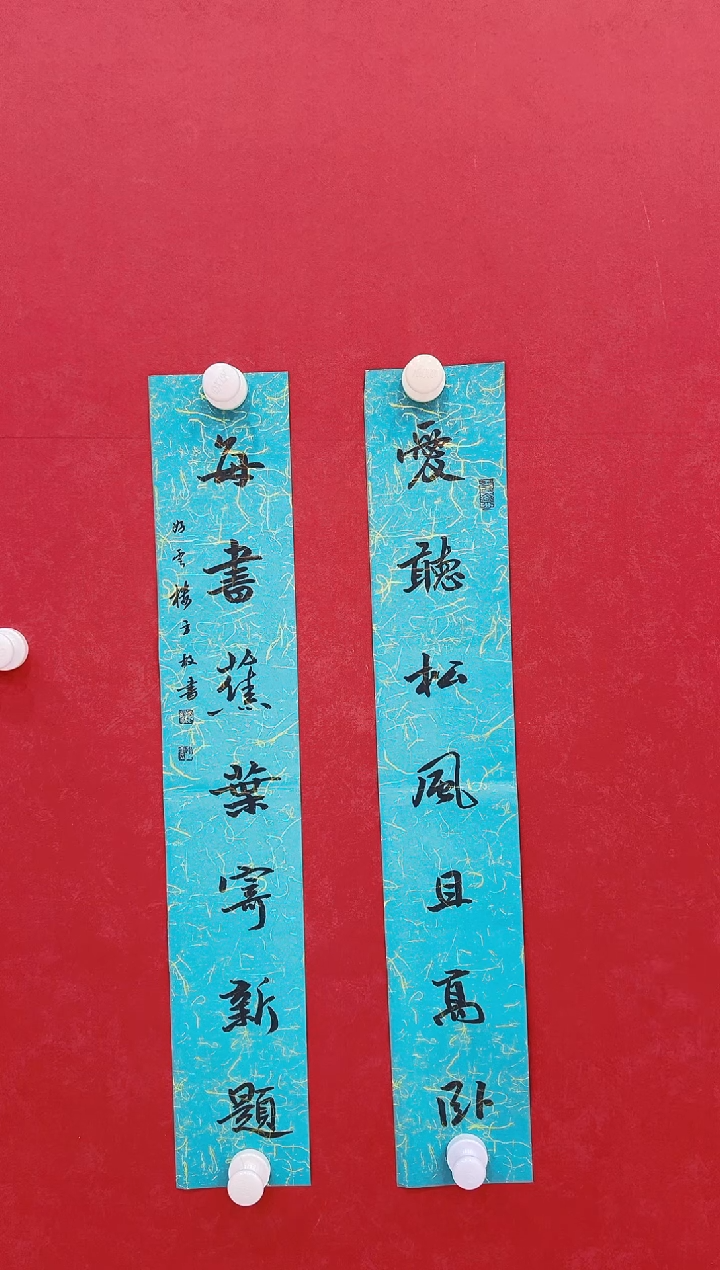 愛聽松風且高卧
每書蕉葉寄新題
樓主敬書